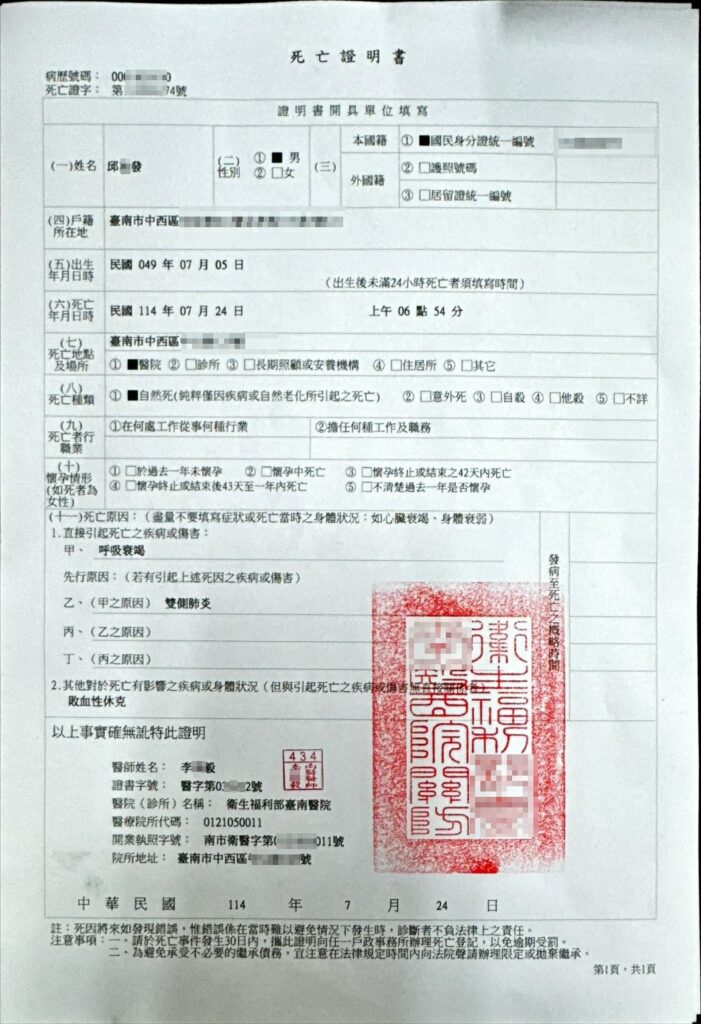 死亡證明書
病歷號碼： 000 0
死亡證字： 第 74號
證明書開具單位填寫
(一)姓名 邱 發 (二)性別 ① ■ 男 ② □女 (三) 本國籍 ① ■國民身分證統一編號
外國籍 ② □護照號碼
③ □居留證統一編號
(四)戶籍所在地 臺南市中西區
(五)出生年月日時 民國 049 年 07 月 05 日
(出生後未滿24小時死亡者須填寫時間)
(六)死亡年月日時 民國 114 年 07 月 24 日 上午 06 點 54 分
(七)死亡地點及場所 臺南市中西區
① ■醫院 ② □診所 ③ □長期照顧或安養機構 ④ □住居所 ⑤ □其它
(八)死亡種類 ① ■自然死(純粹僅因疾病或自然老化所引起之死亡) ② □意外死 ③ □自殺 ④ □他殺 ⑤ □不詳
(九)死亡者行職業 ①在何處工作從事何種行業 ②擔任何種工作及職務
(十)懷孕情形(如死者為女性) ① □於過去一年未懷孕 ② □懷孕中死亡 ③ □懷孕終止或結束之42天內死亡
④ □懷孕終止或結束後43天至一年內死亡 ⑤ □不清楚過去一年是否懷孕
(十一)死亡原因：（盡量不要填寫症狀或死亡當時之身體狀況：如心臟衰竭、身體衰弱）
1.直接引起死亡之疾病或傷害：
甲、 呼吸衰竭
先行原因：（若有引起上述死因之疾病或傷害）
乙、（甲之原因） 雙側肺炎
丙、（乙之原因）
丁、（丙之原因）
發病至死亡之概略時間
2.其他對於死亡有影響之疾病或身體狀況（但與引起死亡之疾病或傷害無直接關係者）
敗血性休克
衛生福利
醫院關防
以上事實確無訛特此證明
醫師姓名： 李 毅
434
證書字號： 醫字第0 2號
醫院（診所）名稱： 衛生福利部臺南醫院
醫療院所代碼： 0121050011
開業執照字號： 南市衛醫字第 011號
院所地址： 臺南市中西區 號
中華民國 114 年 7 月 24 日
註：死因將來如發現錯誤，惟錯誤係在當時難以避免情況下發生時，診斷者不負法律上之責任。
注意事項：一、請於死亡事件發生30日內，攜此證明向任一戶政事務所辦理死亡登記，以免逾期受罰。
二、為避免承受不必要的繼承債務，宜注意在法律規定時間內向法院聲請辦理限定或拋棄繼承。
第1頁，共1頁